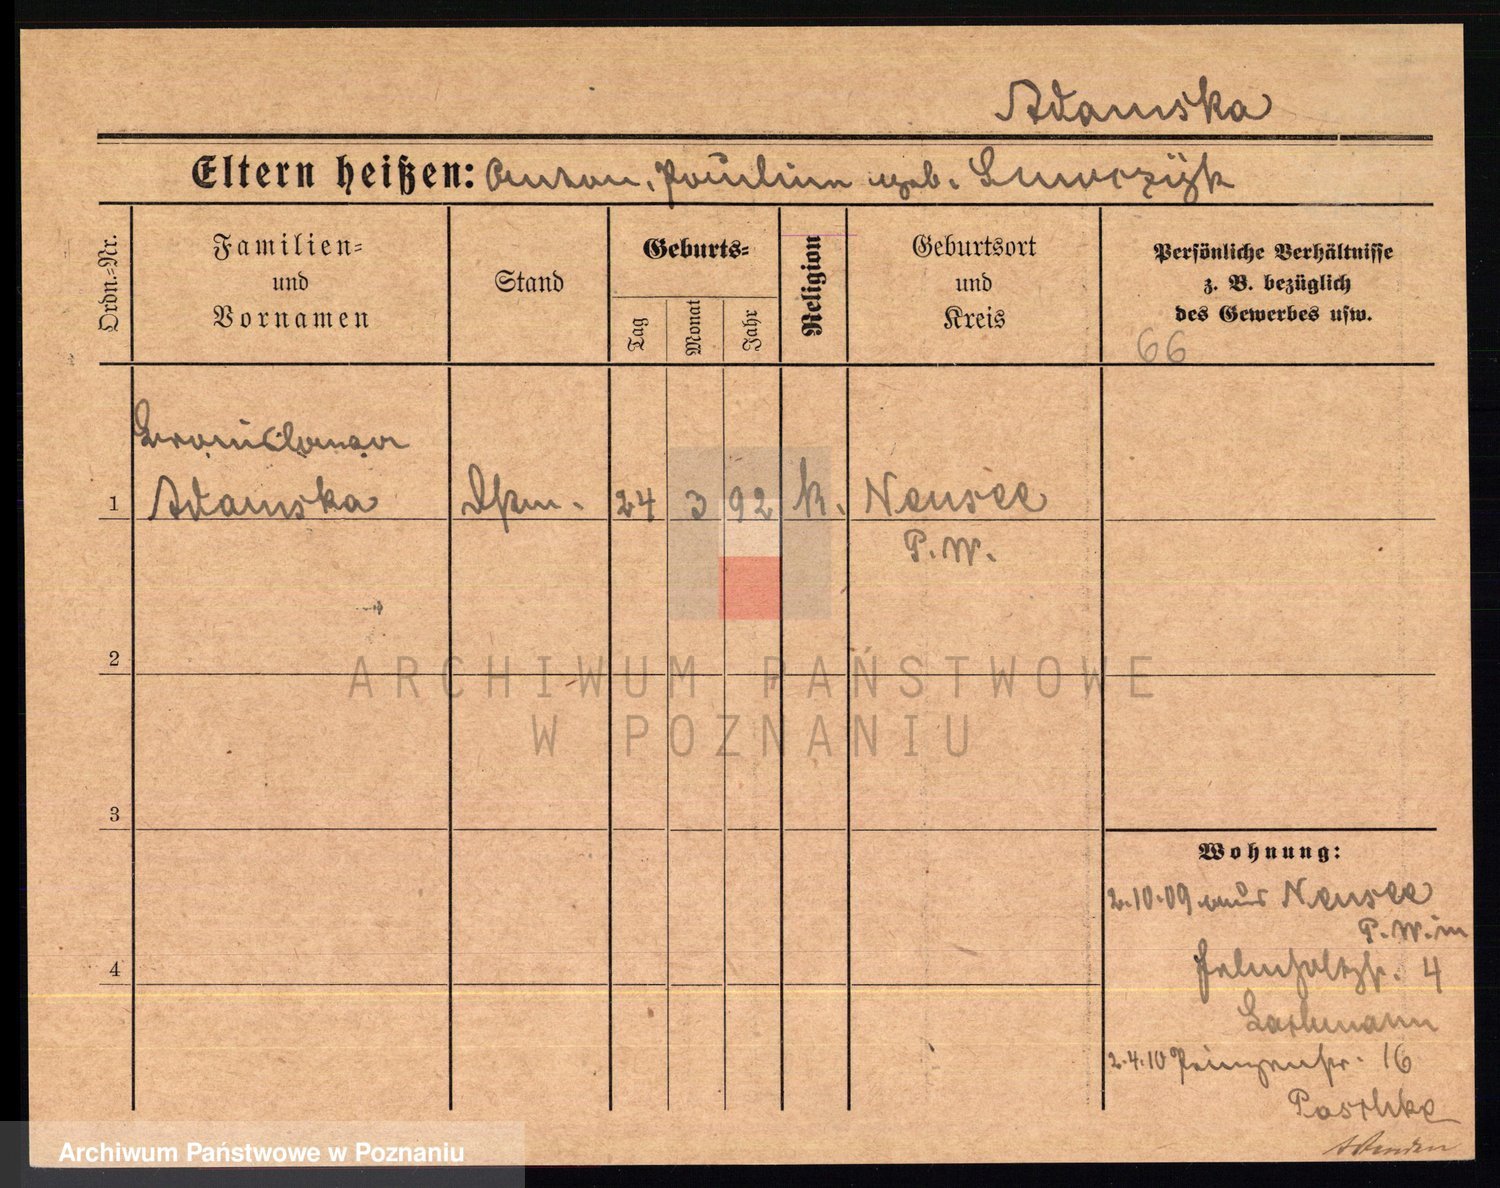 Adamska
Eltern heißen: Anton, Pauline geb.
Ordn.-Nr.
Familien-
und
Vornamen
Stand
Geburts-
Tag
Monat
Jahr
Religion
Geburtsort
und
Kreis
Persönliche Verhältnisse
z. B. bezüglich
des Gewerbes usw.
66
Bronislawa
1 Adamska Dstm. 24 3 92 k. Neusee
P. W.
2
ARCHIWUM PAŃSTWOWE
W POZNANIU
3
Wohnung:
2.10.09 aus Neusee
P. W. in
4
Helmholtzstr. 4
Bachmann
2.4.10 Prinzenstr. 16
Paschke
Wenden
Archiwum Państwowe w Poznaniu